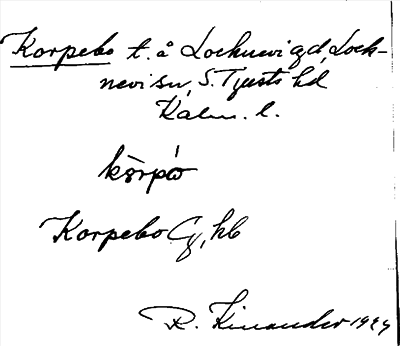 Korpebo t. å Locknevi gd, Lock-
nevi sn, S. Tjusts hd
Kalm. l.
Korpebo hb
R. Kinander